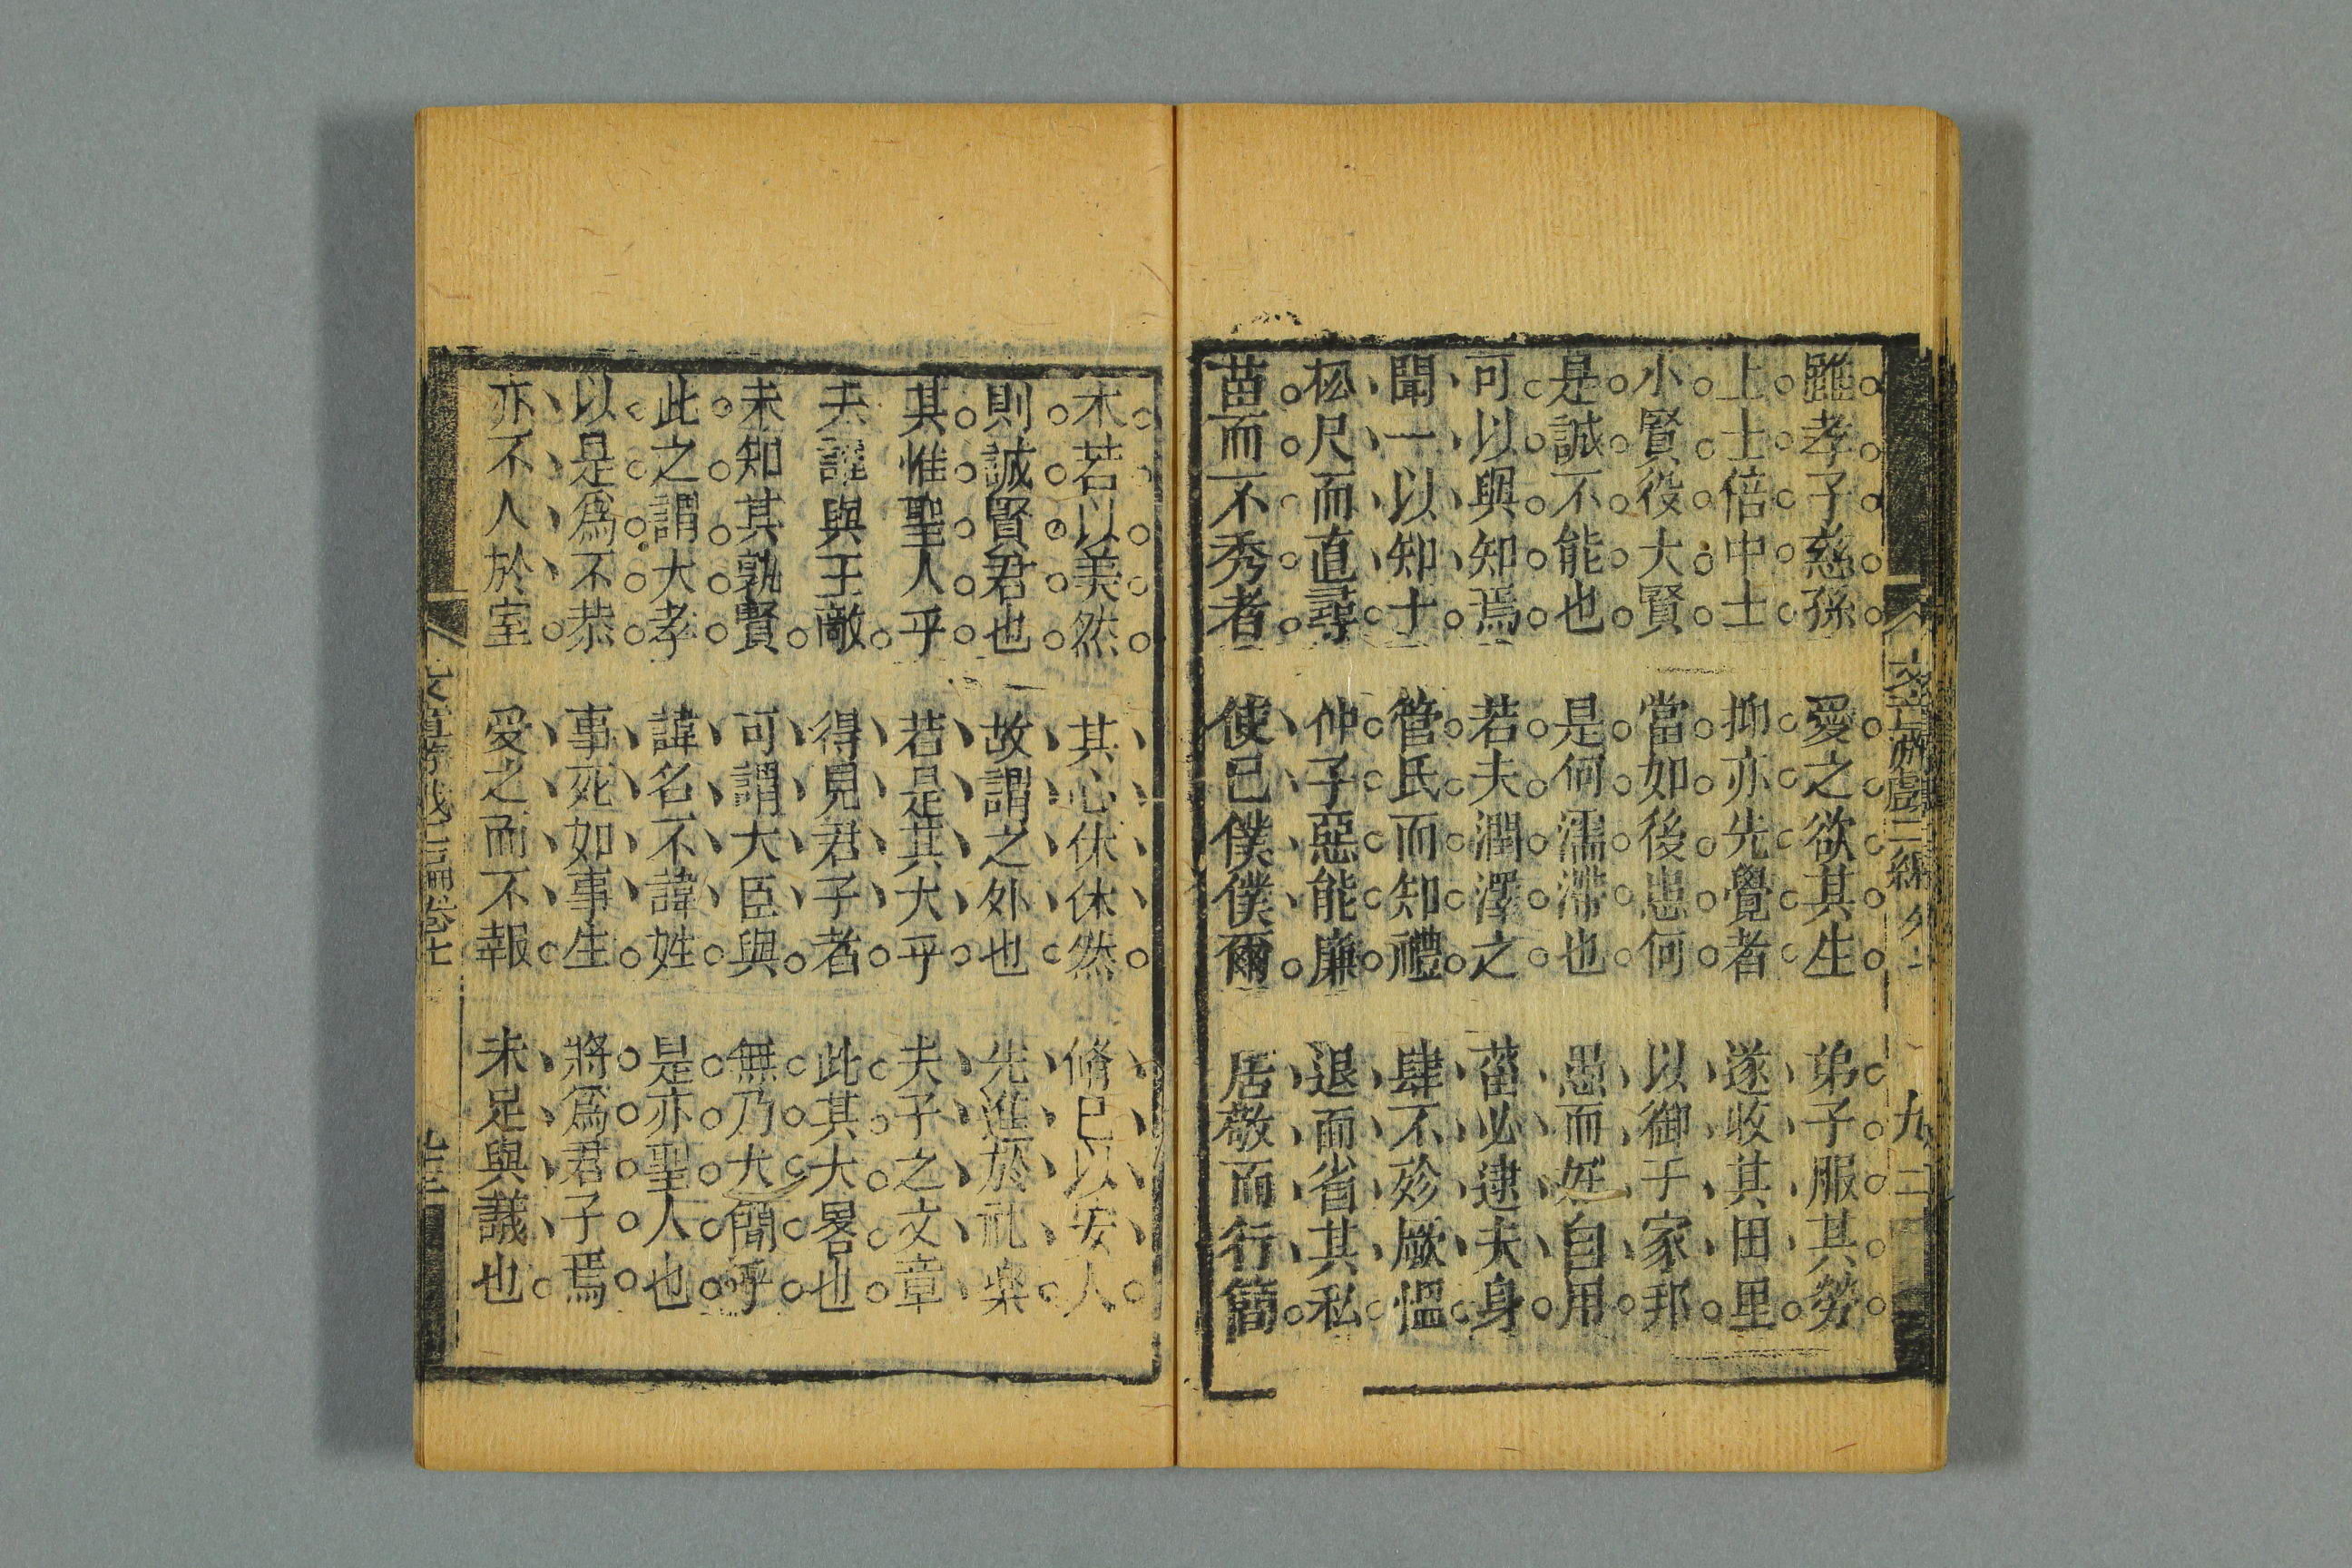 文章游戲三編
九二
雖孝子慈孫 愛之欲其生 弟子服其勞
上士倍中士 抑亦先覺者 遂收其田里
小賢役大賢 當如後患何 以御于家邦
是誠不能也 是何濡滯也 愚而好自用
可以與知焉 若夫潤澤之 菑必逮夫身
聞一以知十 管氏而知禮 肆不殄厥慍
枉尺而直尋 仲子惡能廉 退而省其私
苗而不秀者 使已僕僕爾 居敬而行簡
未若以美然 其心休休然 脩已以安人
則誠賢君也 故謂之外也 先進於礼樂
其惟聖人乎 若是其大乎 夫子之文章
夫誰與王敵 得見君子者 此其大畧也
未知其孰賢 可謂大臣與 無乃大簡乎
此之謂大孝 諱名不諱姓 是亦聖人也
以是爲不恭 事死如事生 將爲君子焉
亦不入於室 愛之而不報 未足與議也